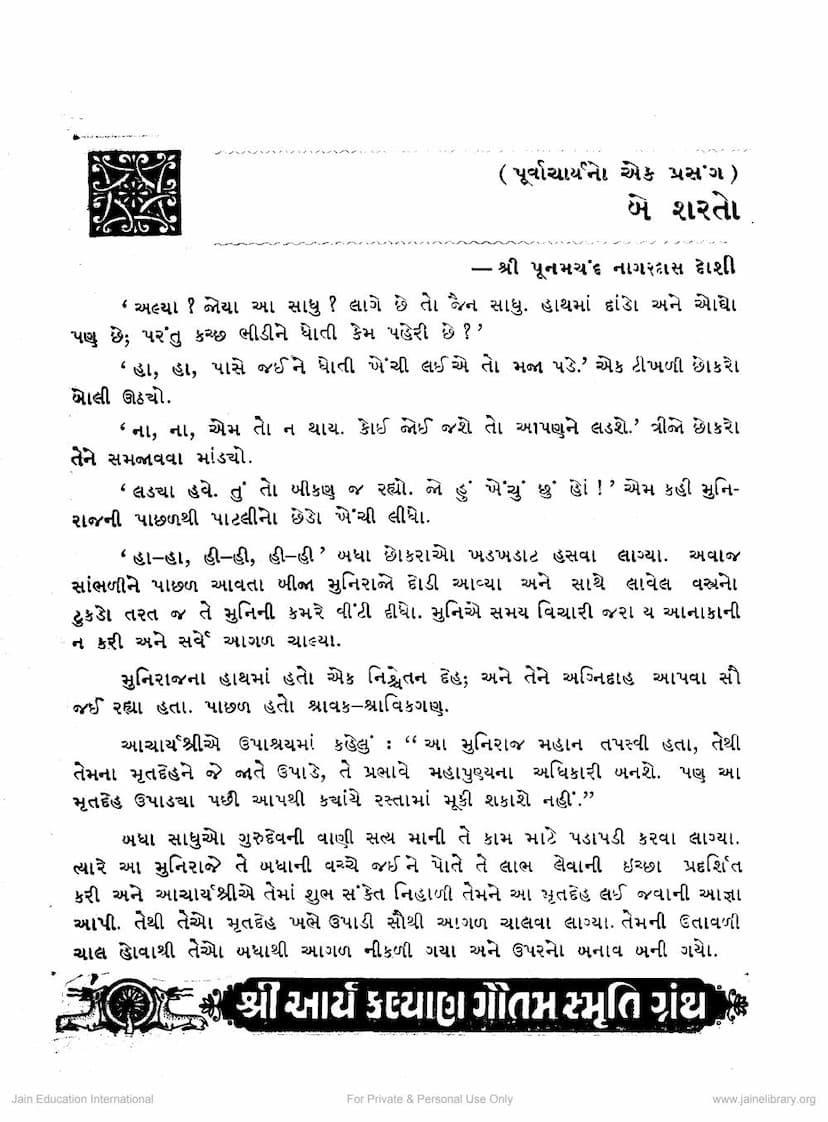 (પૂર્વાચાર્યનો એક પ્રસંગ)
બે શરતો
—શ્રી પૂનમચંદ નાગરદાસ દોશી
‘અલ્યા? જોયા આ સાધુ? લાગે છે તો જૈન સાધુ. હાથમાં દાંડો અને ઓઘો
પણ છે; પરંતુ કચ્છ ભીડીને ધોતી કેમ પહેરી છે?’
‘હા, હા, પાસે જઈને ધોતી ખેંચી લઈએ તો મજા પડે.’ એક ટીખળી છોકરો
બોલી ઊઠ્યો.
‘ના, ના, એમ તો ન થાય. કોઈ જોઈ જશે તો આપણને લડશે.’ ત્રીજો છોકરો
તેને સમજાવવા માંડ્યો.
‘લડ્યા હવે. તું તો બીકણ જ રહ્યો. જો હું ખેંચું છું હોં!’ એમ કહી મુનિ-
રાજની પાછળથી પાટલીનો છેડો ખેંચી લીધો.
‘હા–હા, હી–હી, હી–હી’ બધા છોકરાઓ ખડખડાટ હસવા લાગ્યા. અવાજ
સાંભળીને પાછળ આવતા બીજા મુનિરાજો દોડી આવ્યા અને સાથે લાવેલ વસ્ત્રનો
ટુકડો તરત જ તે મુનિની કમરે વીંટી દીધો. મુનિએ સમય વિચારી જરા ય આનાકાની
ન કરી અને સર્વે આગળ ચાલ્યા.
મુનિરાજના હાથમાં હતો એક નિશ્ચેતન દેહ; અને તેને અગ્નિદાહ આપવા સૌ
જઈ રહ્યા હતા. પાછળ હતો શ્રાવક–શ્રાવિકગણ.
આચાર્યશ્રીએ ઉપાશ્રયમાં કહેલું : “આ મુનિરાજ મહાન તપસ્વી હતા, તેથી
તેમના મૃતદેહને જે જાતે ઉપાડે, તે પ્રભાવે મહાપુણ્યના અધિકારી બનશે. પણ આ
મૃતદેહ ઉપાડ્યા પછી આપથી ક્યાંયે રસ્તામાં મૂકી શકાશે નહીં.”
બધા સાધુઓ ગુરુદેવની વાણી સત્ય માની તે કામ માટે પડાપડી કરવા લાગ્યા.
ત્યારે આ મુનિરાજે તે બધાની વચ્ચે જઈને પોતે તે લાભ લેવાની ઇચ્છા પ્રદર્શિત
કરી અને આચાર્યશ્રીએ તેમાં શુભ સંકેત નિહાળી તેમને આ મૃતદેહ લઈ જવાની આજ્ઞા
આપી. તેથી તેઓ મૃતદેહ ખભે ઉપાડી સૌથી આગળ ચાલવા લાગ્યા. તેમની ઉતાવળી
ચાલ હોવાથી તેઓ બધાથી આગળ નીકળી ગયા અને ઉપરનો બનાવ બની ગયો.
શ્રી આર્ય કલ્યાણ ગૌતમ સ્મૃતિ ગ્રંથ
Jain Education International For Private & Personal Use Only www.jainelibrary.org